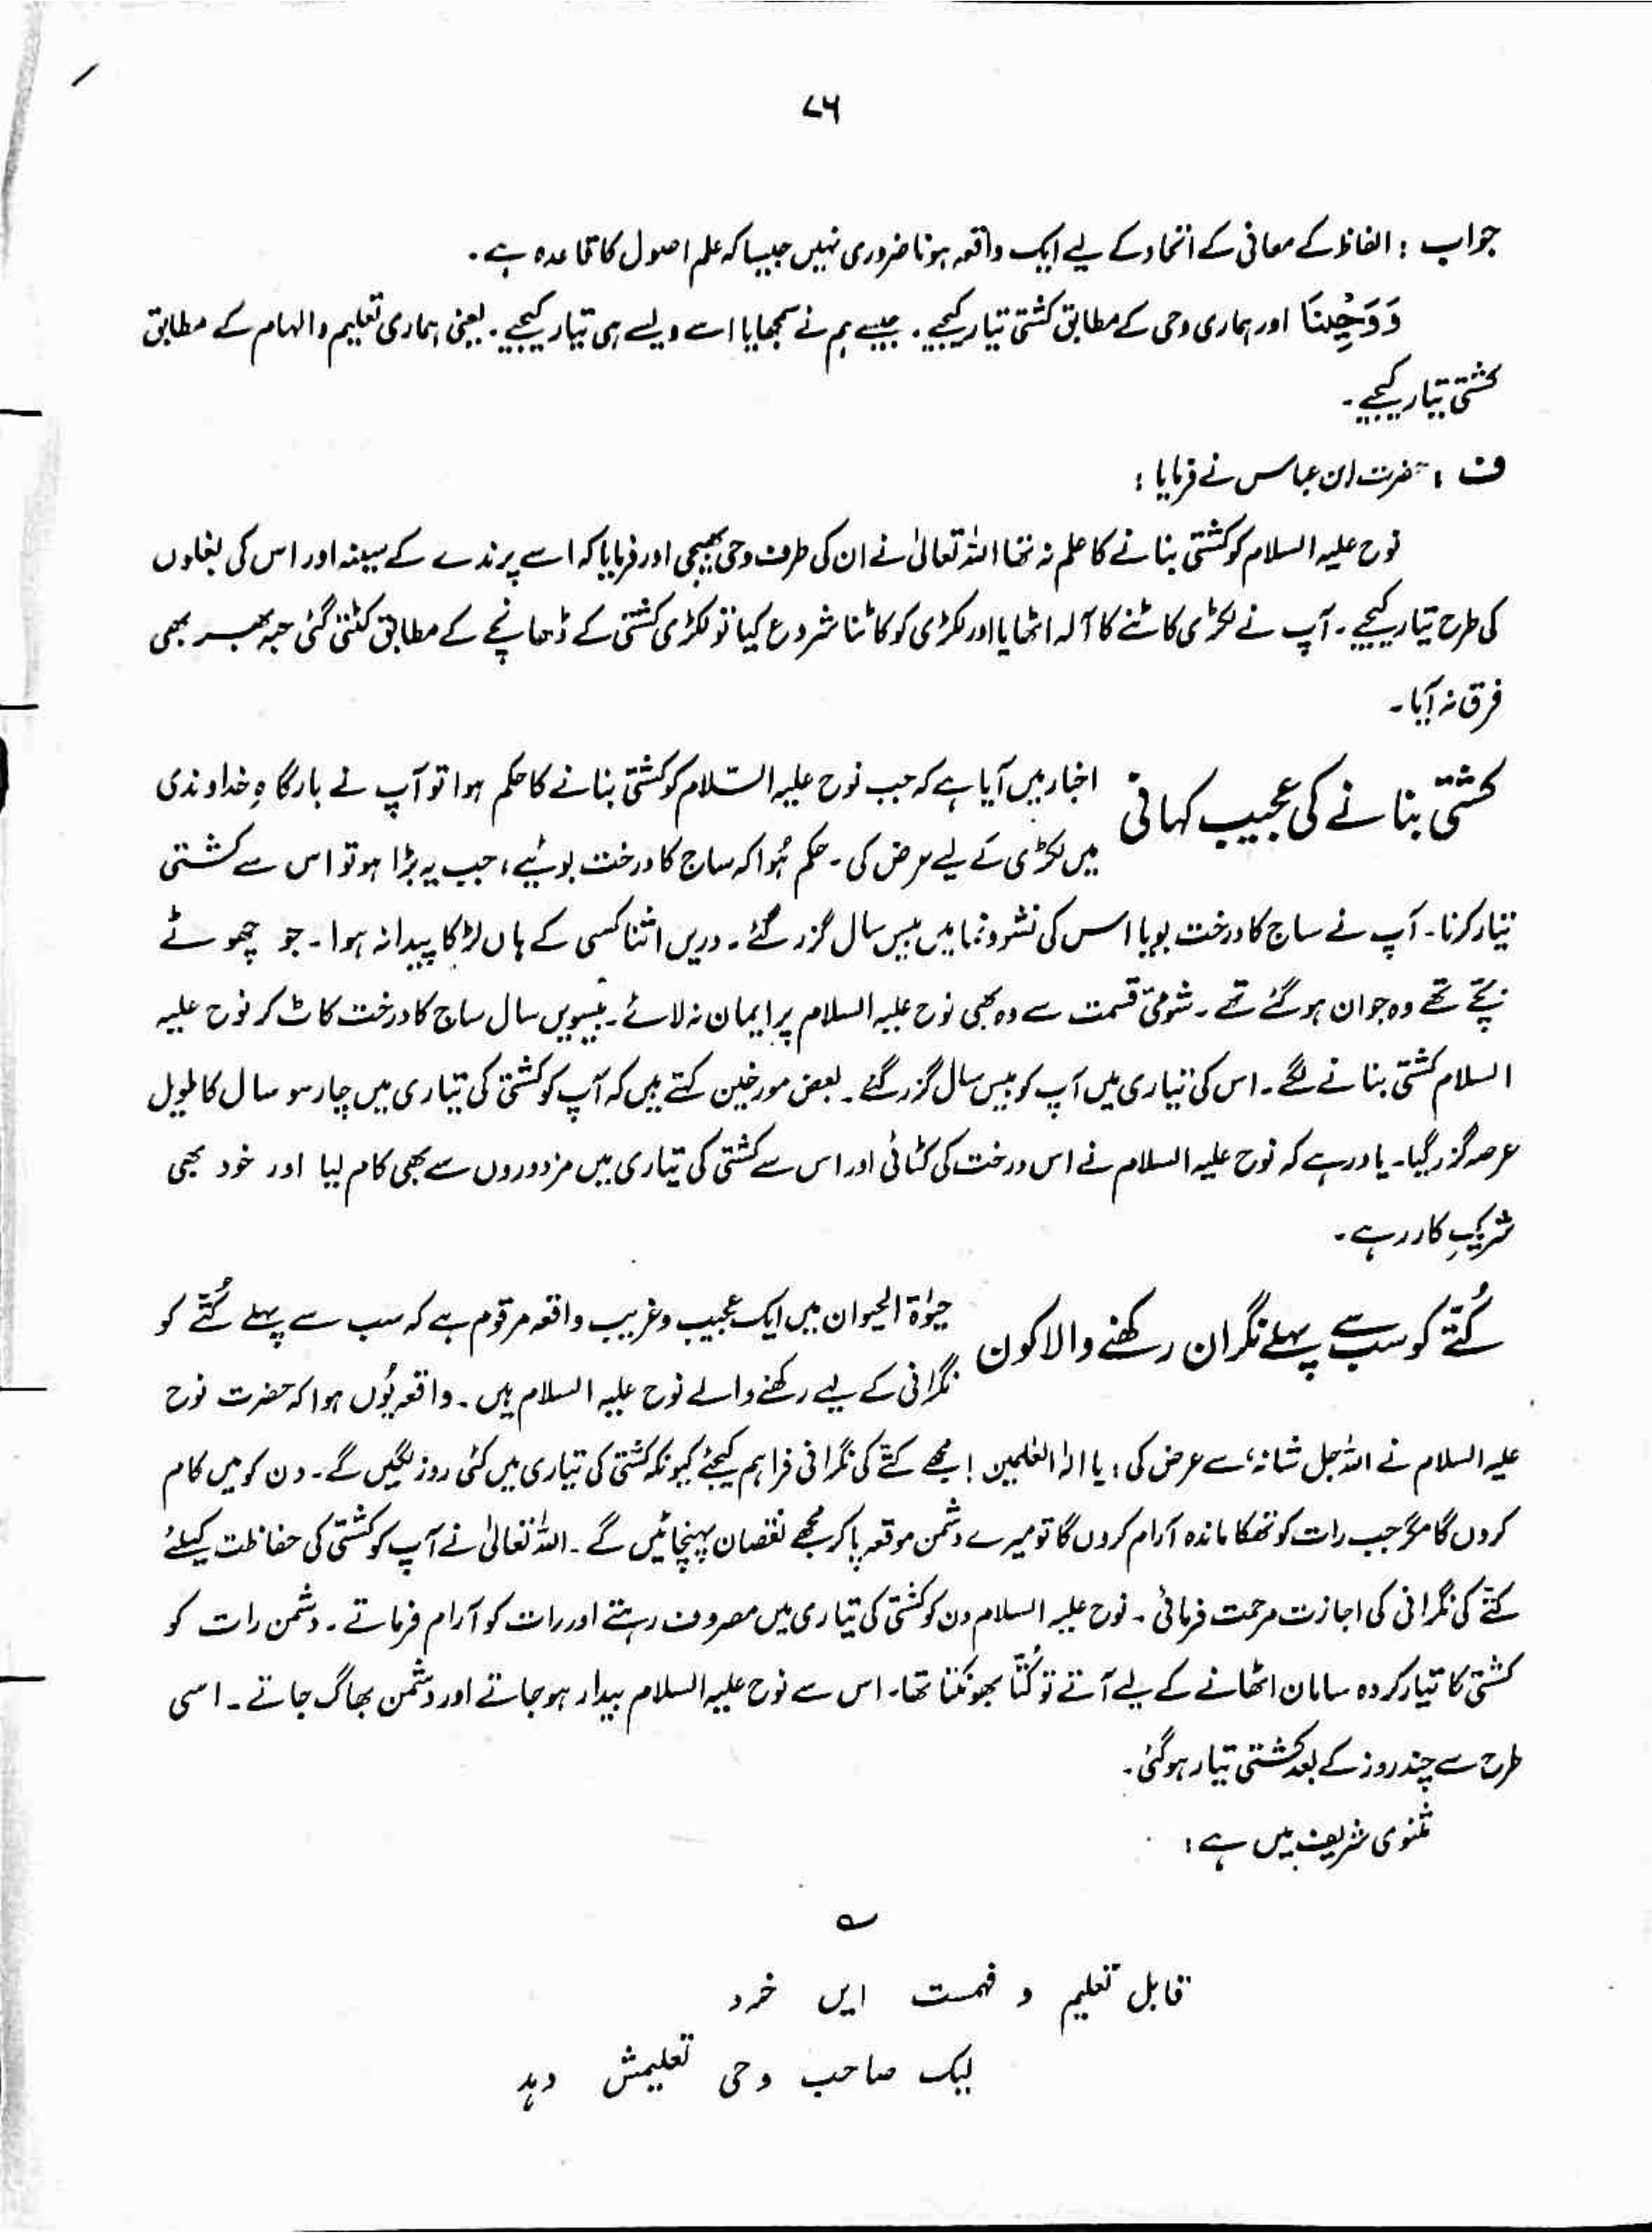 ۷۶
جواب : الفاظ کے معانی کے اتحاد کے لیے ایک واقعہ ہونا ضروری نہیں جیسا کہ علم اصول کا قاعدہ ہے ۔
وَوَحْيِنَا اور ہماری وحی کے مطابق کشتی تیار کیجیے ۔ جیسے ہم نے سمجھایا اسے ویسے ہی تیار کیجیے ۔ یعنی ہماری تعلیم و الہام کے مطابق
کشتی تیار کیجیے ۔
ف : حضرت ابن عباس نے فرمایا :
نوح علیہ السلام کو کشتی بنانے کا علم نہ تھا اللہ تعالیٰ نے ان کی طرف وحی بھیجی اور فرمایا کہ اسے پرندے کے سینہ اور اس کی بغلوں
کی طرح تیار کیجیے ۔ آپ نے لکڑی کاٹنے کا آلہ اٹھایا اور لکڑی کو کاٹنا شروع کیا تو لکڑی کشتی کے ڈھانچے کے مطابق کٹتی گئی حبہ بھر بھی
فرق نہ آیا ۔
کشتی بنانے کی عجیب کہانی اخبار میں آیا ہے کہ جب نوح علیہ السّلام کو کشتی بنانے کا حکم ہوا تو آپ نے بارگاہِ خداوندی
میں لکڑی کے لیے عرض کی ۔ حکم ہُوا کہ ساج کا درخت بوئیے ، جب یہ بڑا ہو تو اس سے کشتی
تیار کرنا ۔ آپ نے ساج کا درخت بویا اس کی نشوونما میں بیس سال گزر گئے ۔ دریں اثنا کسی کے ہاں لڑکا پیدا نہ ہوا ۔ جو چھوٹے
بچّے تھے وہ جوان ہو گئے تھے ۔ شومیِٔ قسمت سے وہ بھی نوح علیہ السلام پر ایمان نہ لائے ۔ بیسویں سال ساج کا درخت کاٹ کر نوح علیہ
السلام کشتی بنانے لگے ۔ اس کی تیاری میں آپ کو بیس سال گزر گئے ۔ بعض مورخین کہتے ہیں کہ آپ کو کشتی کی تیاری میں چار سو سال کا طویل
عرصہ گزر گیا ۔ یاد رہے کہ نوح علیہ السلام نے اس درخت کی کٹائی اور اس سے کشتی کی تیاری میں مزدوروں سے بھی کام لیا اور خود بھی
شریکِ کار رہے ۔
کُتّے کو سب سے پہلے نگران رکھنے والا کون حیٰوۃ الحیوان میں ایک عجیب و غریب واقعہ مرقوم ہے کہ سب سے پہلے کُتّے کو
نگرانی کے لیے رکھنے والے نوح علیہ السلام ہیں ۔ واقعہ یُوں ہوا کہ حضرت نوح
علیہ السلام نے اللہ جل شانہٗ سے عرض کی : یا الہٰ العٰلمین ! مجھے کتّے کی نگرانی فراہم کیجئے کیونکہ کشتی کی تیاری میں کئی روز لگیں گے ۔ دن کو میں کام
کروں گا مگر جب رات کو تھکا ماندہ آرام کروں گا تو میرے دشمن موقعہ پا کر مجھے نقصان پہنچائیں گے ۔ اللہ تعالیٰ نے آپ کو کشتی کی حفاظت کیلئے
کتّے کی نگرانی کی اجازت مرحمت فرمائی ۔ نوح علیہ السلام دن کو کشتی کی تیاری میں مصروف رہتے اور رات کو آرام فرماتے ۔ دشمن رات کو
کشتی کا تیار کردہ سامان اٹھانے کے لیے آتے تو کُتّا بھونکتا تھا ۔ اس سے نوح علیہ السلام بیدار ہو جاتے اور دشمن بھاگ جاتے ۔ اسی
طرح سے چند روز کے بعد کشتی تیار ہو گئی ۔
مثنوی شریف میں ہے :
؎
قابل تعلیم و فہمست ایں خرد
لیک صاحب وحی تعلیمش دہد